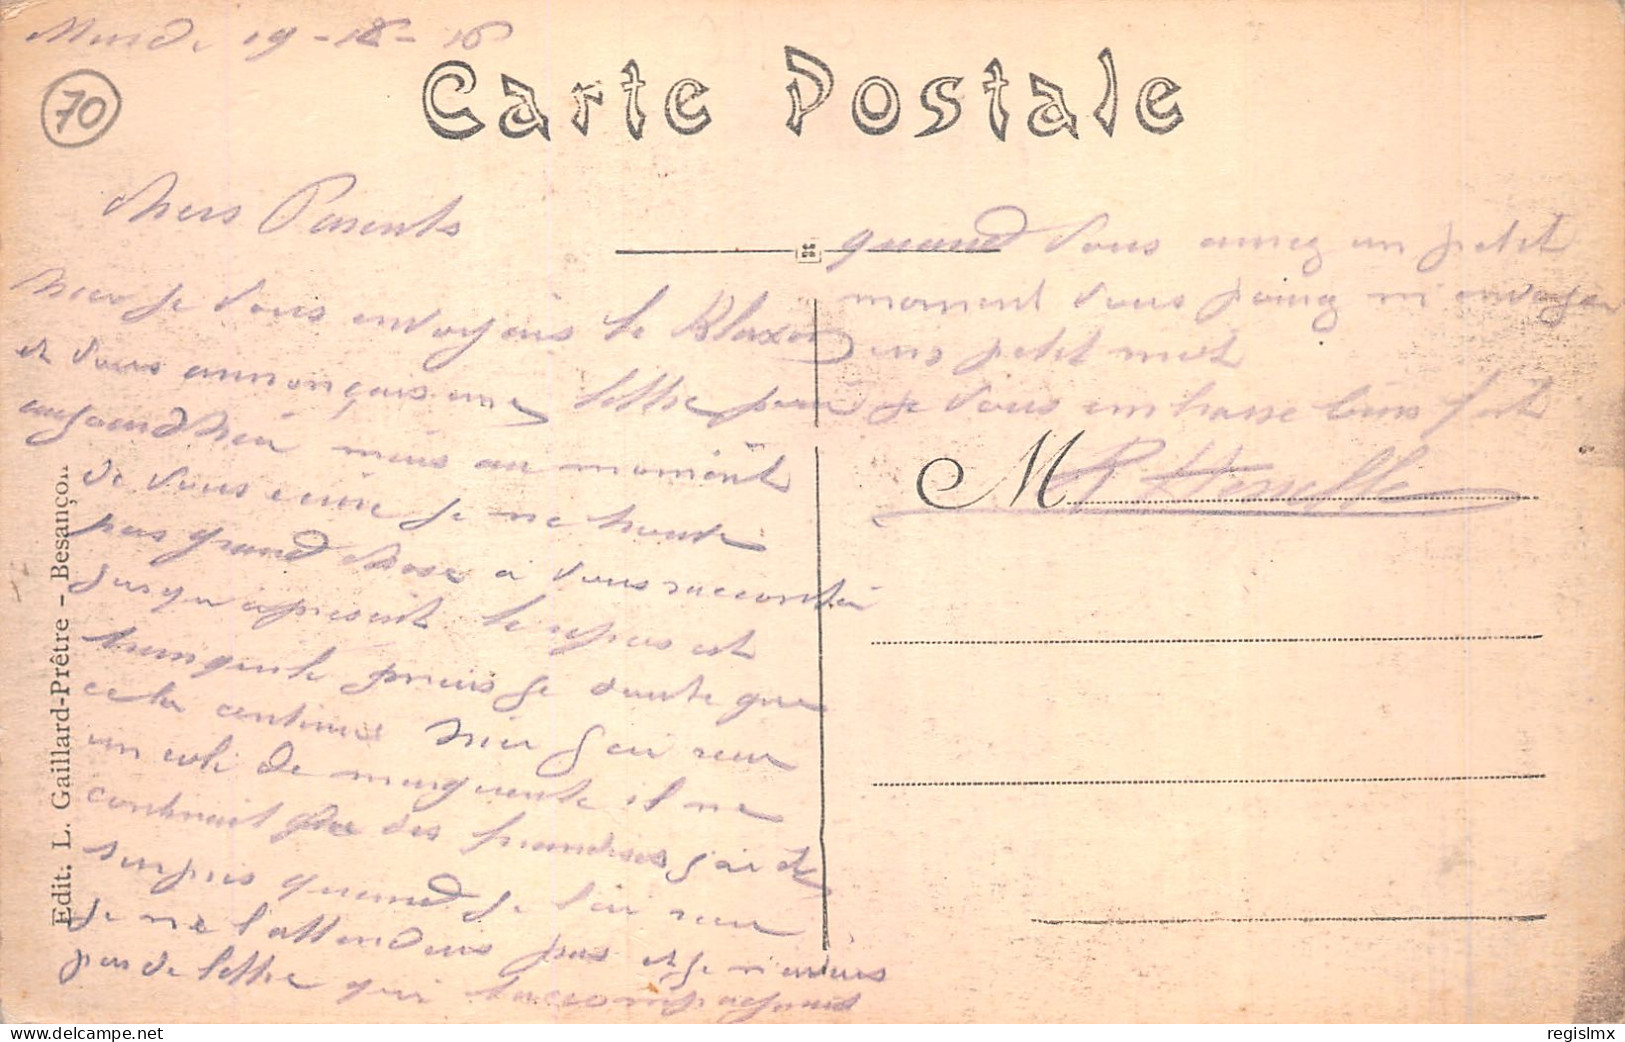 19 - 12 - 16
70
Carte Postale
Chers Parents
hier je vous envoyais le Blaxon
et vous annonçais une lettre pour
aujourd'hui mais au moment
de vous écrire je ne trouve
pas grand chose a vous raconter
jusqu'a présent le repos est
tranquile mais je doute que
cela continue hier j'ai reçu
un coli de marguerite il ne
contenait que des friandises j'ai été
surpris quand je l'ai reçu
je ne l'attendais pas et je n'avais
pas de lettre qui l'accompagnait
quand vous aurez un petit
moment vous pourez m'envoyer
un petit mot
je vous embrasse bien fort
M
Edit: L. Gaillard-Prêtre - Besançon
regislmx